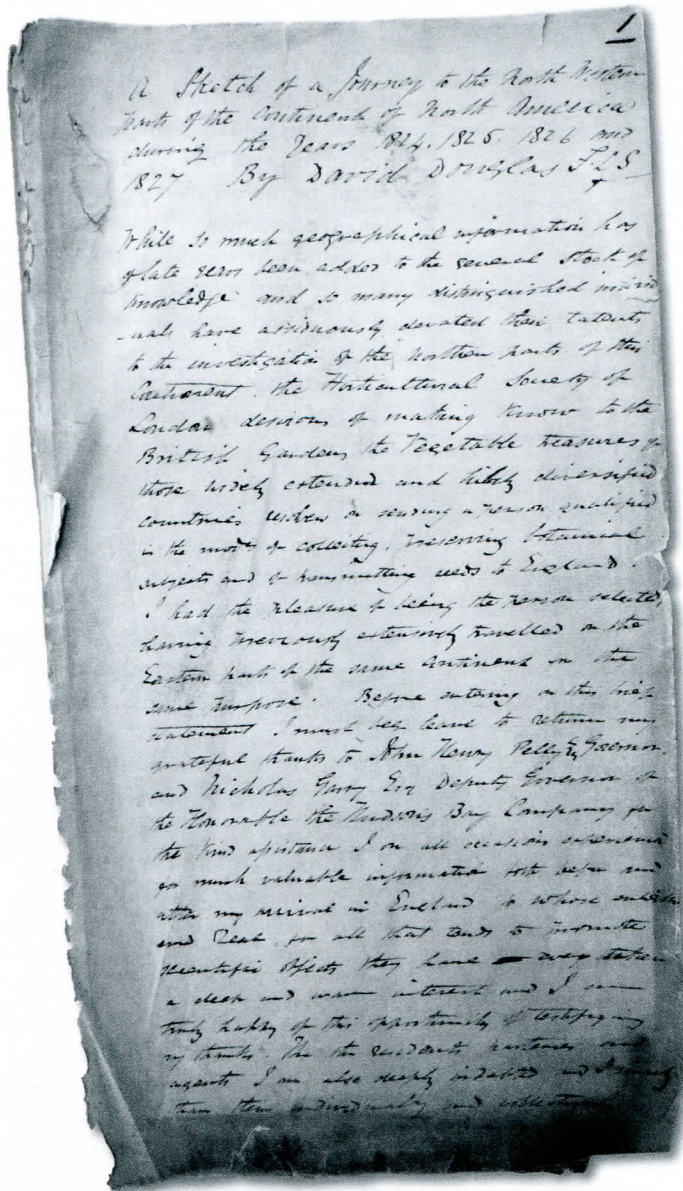 1
A Sketch of a Journey to the North Western
parts of the Continent of North America
during the Years 1824. 1825. 1826 and
1827 By David Douglas F.L.S
While so much geographical information has
of late years been added to the general stock of
knowledge and so many distinguished individ
-uals have assiduously devoted their talents
to the investigation of the northern parts of this
Continent, the Horticultural Society of
London desirous of making know to the
British Gardens the Vegetable treasures of
those widely extended and highly diversified
countries resolved on sending a person qualified
in the modes of collecting, preserving botanical
subjects and of transmitting seeds to England.
I had the pleasure of being the person selected,
having previously extensively travelled on the
Eastern parts of the same Continent on the
same purpose. Before entering on this brief
statement I must beg leave to return my
grateful thanks to John Henry Pelly Esq Governor,
and Nicholas Garry Esq Deputy Governor of
the Honorable the Hudsons Bay Company for
the kind assistance I on all occasions experienced
for much valuable information both before and
after my arrival in England to whose
and zeal for all that tends to promote
scientific objects they have
a deep and warm interest and I am
truly happy of this opportunity of testifying
my thanks. The residents partners and
agents I am also deeply indebted and
them individually and